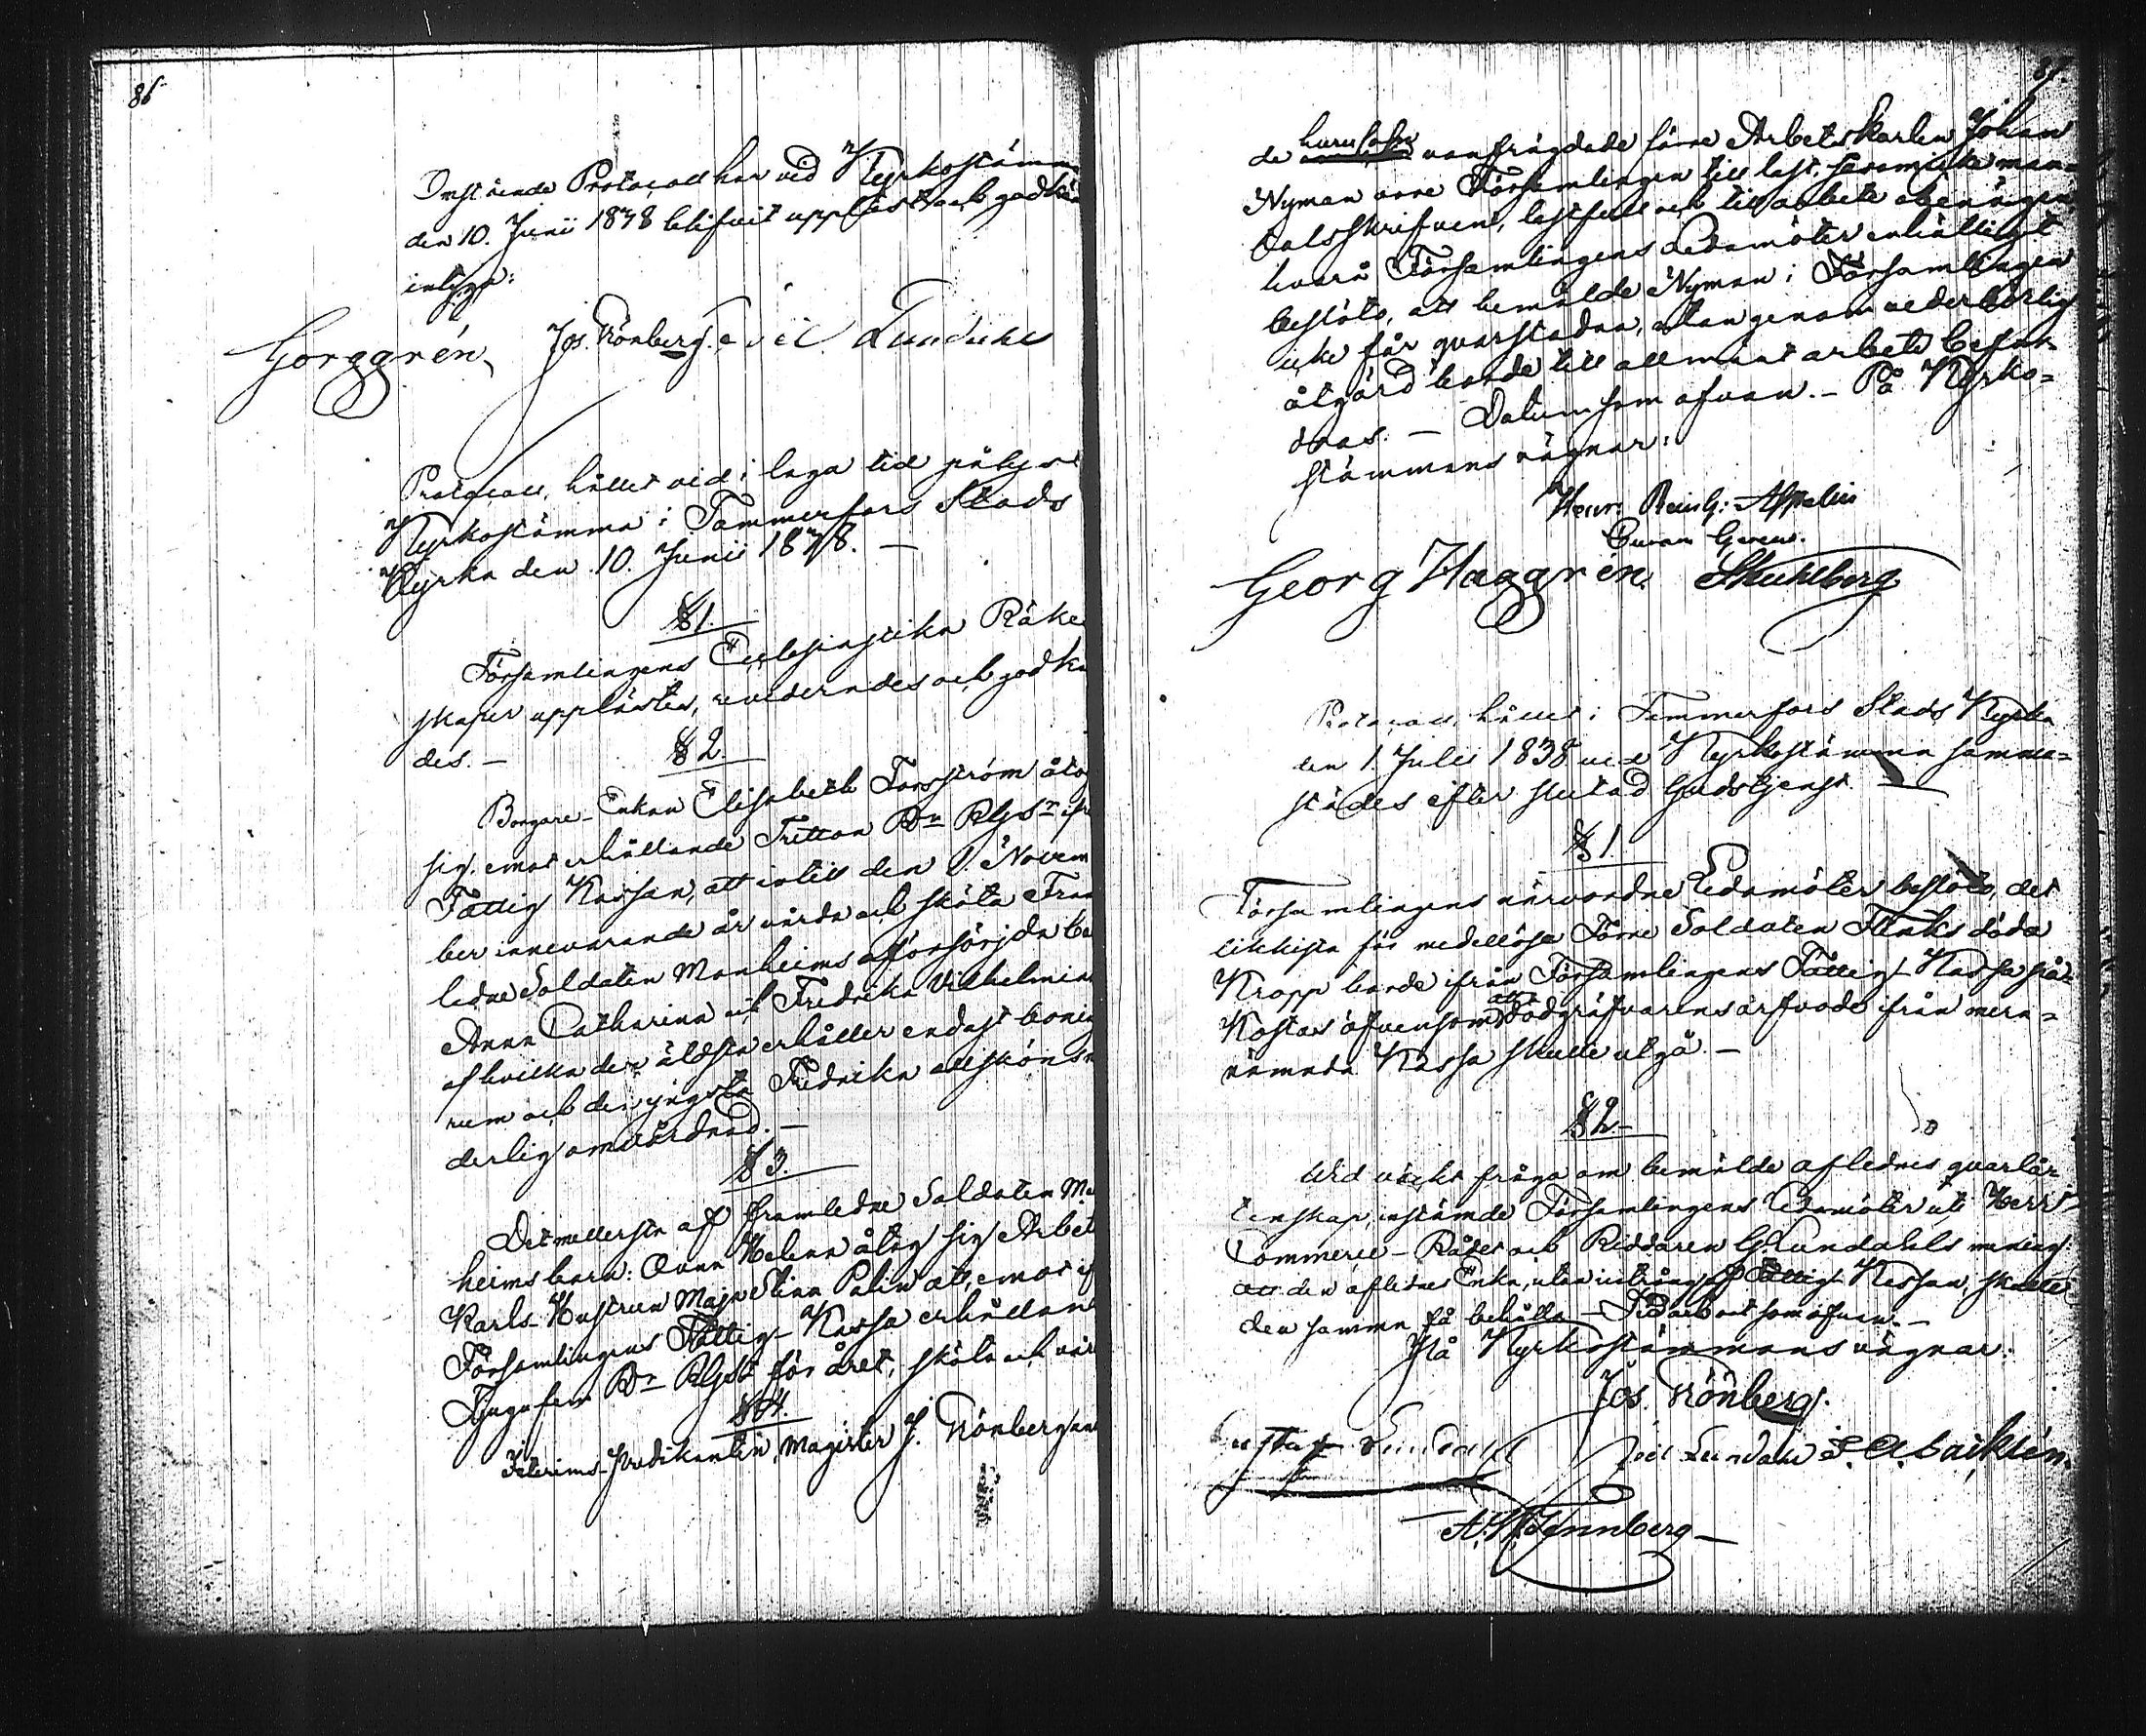 86
Protocoll har vid Kyrkostämm
den 10. Junii 1838 blifvit uppläst och godkän
intyga:
Georg Haggrén Jos. Rönberg Lundahl
Protocoll, hållet vid i laga tid pålyst
Kyrkostämma i Tammerfors Stads
Kyrka den 10. Junii 1838. —
§ 1.
Församlingens Ecclesiastika Räken
skaper upplästes, reviderades och godkän
des. —
§ 2.
Borgare-Enkan Elisabeth Forsström åtog
sig, emot erhållande Tretton Rn Rgs ifr
Fattig Kassan, att intill den 1. Novem
ber innevarande år vårda och sköta Fram
lidne Soldaten Manheims oförsörjda ba
Anna Catharina och Fredrika Vilhelmina
af hvilka den äldsta erhåller endast bonin
rum och den yngsta Fredrika
derlig omvårdnad. —
§ 3.
Det mellersta af framledne Soldaten Ma
heims barn: Anna Helena åtog sig Arbets
Karls-Hustrun Maja Stina Palin att, emot if
Församlingens Fattig-Kassa erhållan
Tjugufem Rn Rgs för året, sköta och vår
§ 4.
Interims-Predikanten, Magister J. Rönberg an
87.
de hurusom förre Arbetskarlen Johan
Nyman vore Församlingen till last, man-
talsskrifven, lastfull och till arbete obenägen,
hvarå Församlingens Ledamöter enhälligt
beslöto, att bemälde Nyman i Församlingen
icke får qvarstadna, utan genom vederbörlig
åtgärd borde till allmänt arbete befor-
dras. — Datum som ofvan. — På Kyrko-
stämmans vägnar:
Henr: Reinh: Aspelin
Georg Haggrén. Stuhlberg
Protocoll, hållet i Tammerfors Stads Kyrka
den 1. Julii 1838 vid Kyrkostämma samma-
städes efter slutad Gudstjenst. —
§ 1.
Församlingens närvarande Ledamöter beslöto, det
likkista för medellöse Förre Soldaten Flinks döda
Kropp borde ifrån Församlingens Fattig-Kassa på-
Kostas äfvensom att Dödgräfvarens arfvode från mera-
nämnda Kassa skulle utgå. —
§ 2. —
Vid väckt fråga om bemälde aflednes qvarlå-
tenskap, instämde Församlingens Ledamöter uti Herr
Commercie-Rådet och Riddaren G. Lundahls mening:
att den aflidnes Enka, utan intrång af Fattig-Kassan, skulle
den samma få behålla. — Tid och ort som ofvan. —
På Kyrkostämmans vägnar:
Jos. Rönberg.
Gustaf Lundahl Joel Lundahl
A. W. Wennberg